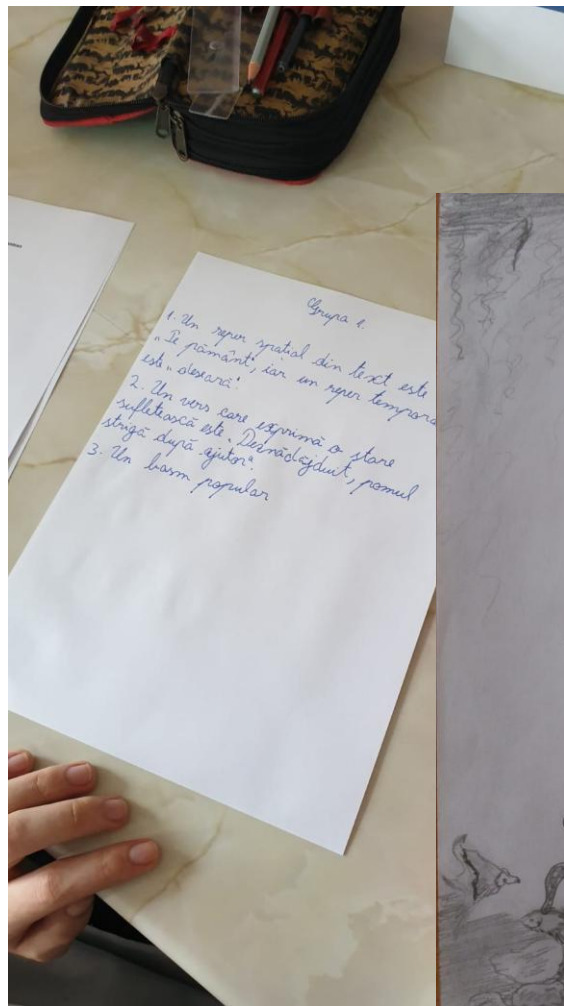 Grupa 1.
1. Un reper spațial din text este
„Pe pământ”, iar un reper tempora
este „deseară”.
2. Un vers care exprimă o stare
sufletească este „Deznădăjduit, pomul
strigă după ajutor”.
3. Un basm popular